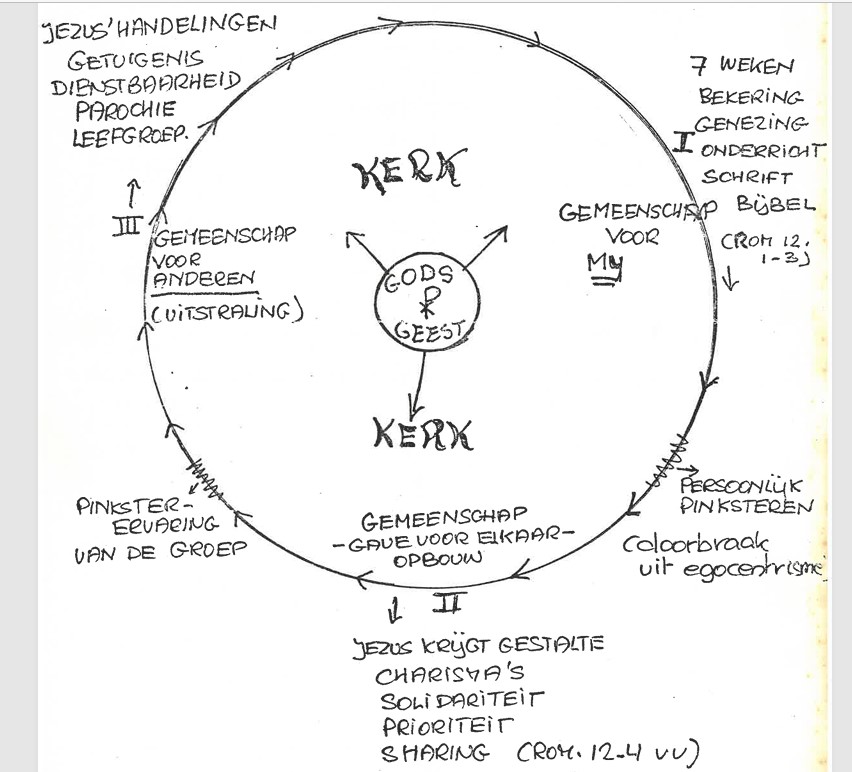 JEZUS' HANDELINGEN
GETUIGENIS
DIENSTBAARHEID
PAROCHIE
LEEFGROEP.
7 WEKEN
BEKERING
GENEZING
I
ONDERRICHT
SCHRIFT
BIJBEL
(ROM 12.
1-3)
KERK
GEMEENSCHAP
VOOR
MIJ
III
GEMEENSCHAP
VOOR
ANDEREN
(UITSTRALING)
GODS
GEEST
KERK
PERSOONLIJK
PINKSTEREN
(doorbraak
uit egocentrisme)
PINKSTER-
ERVARING
VAN DE GROEP
GEMEENSCHAP
-GAVE VOOR ELKAAR-
OPBOUW
II
JEZUS KRIJGT GESTALTE
CHARISMA'S
SOLIDARITEIT
PRIORITEIT
SHARING (ROM. 12-4 VV)